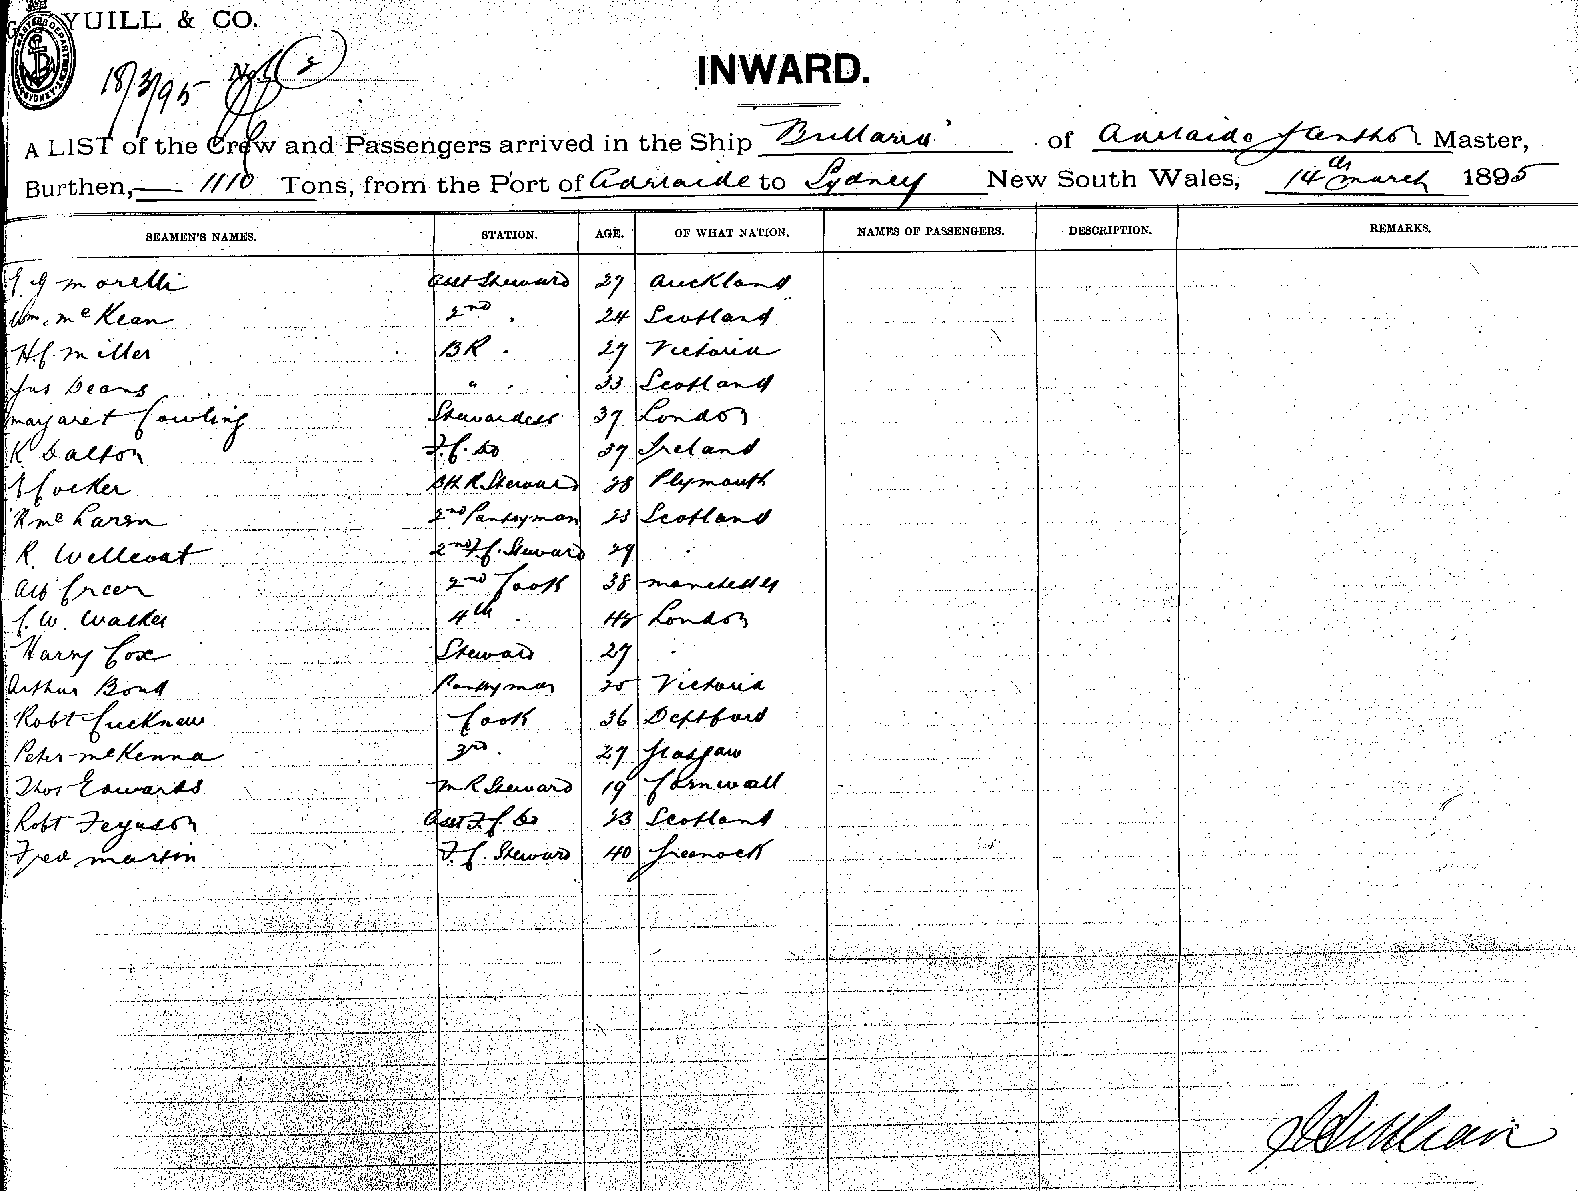 YUILL & CO.
18/3/95 (2)
INWARD.
A LIST of the Crew and Passengers arrived in the Ship Bullarra of Adelaide J Anthon Master,
Burthen, 1110 Tons, from the Port of Adelaide to Sydney New South Wales, 14th March 1895
SEAMEN'S NAMES. STATION. AGE. OF WHAT NATION. NAMES OF PASSENGERS. DESCRIPTION. REMARKS.
G Morelli Asst Steward 27 Auckland
Wm. McKean 2nd " 24 Scotland
H C Miller BR " 27 Victoria
Jas Deans " " 33 Scotland
Margaret Cowling Stewardess 37 London
K Dalton F.C. do 37 Ireland
Cocker Bth R. Steward 28 Plymouth
R McLaren 2nd Pantryman 23 Scotland
R. Wellcoat 2nd F.C. Steward 29 "
Alf Green 2nd Cook 38 Manchester
C. W. Walker 4th " 48 London
Harry Cox Steward 27 "
Arthur Bond Pantryman 20 Victoria
Robt Cucknew Cook 36 Deptford
Peter McKenna 3rd " 27 Glasgow
Thos Edwards M R Steward 19 Cornwall
Robt Feguson Asst F.C. do 23 Scotland
Fred Martin F.C. Steward 40 Greenock